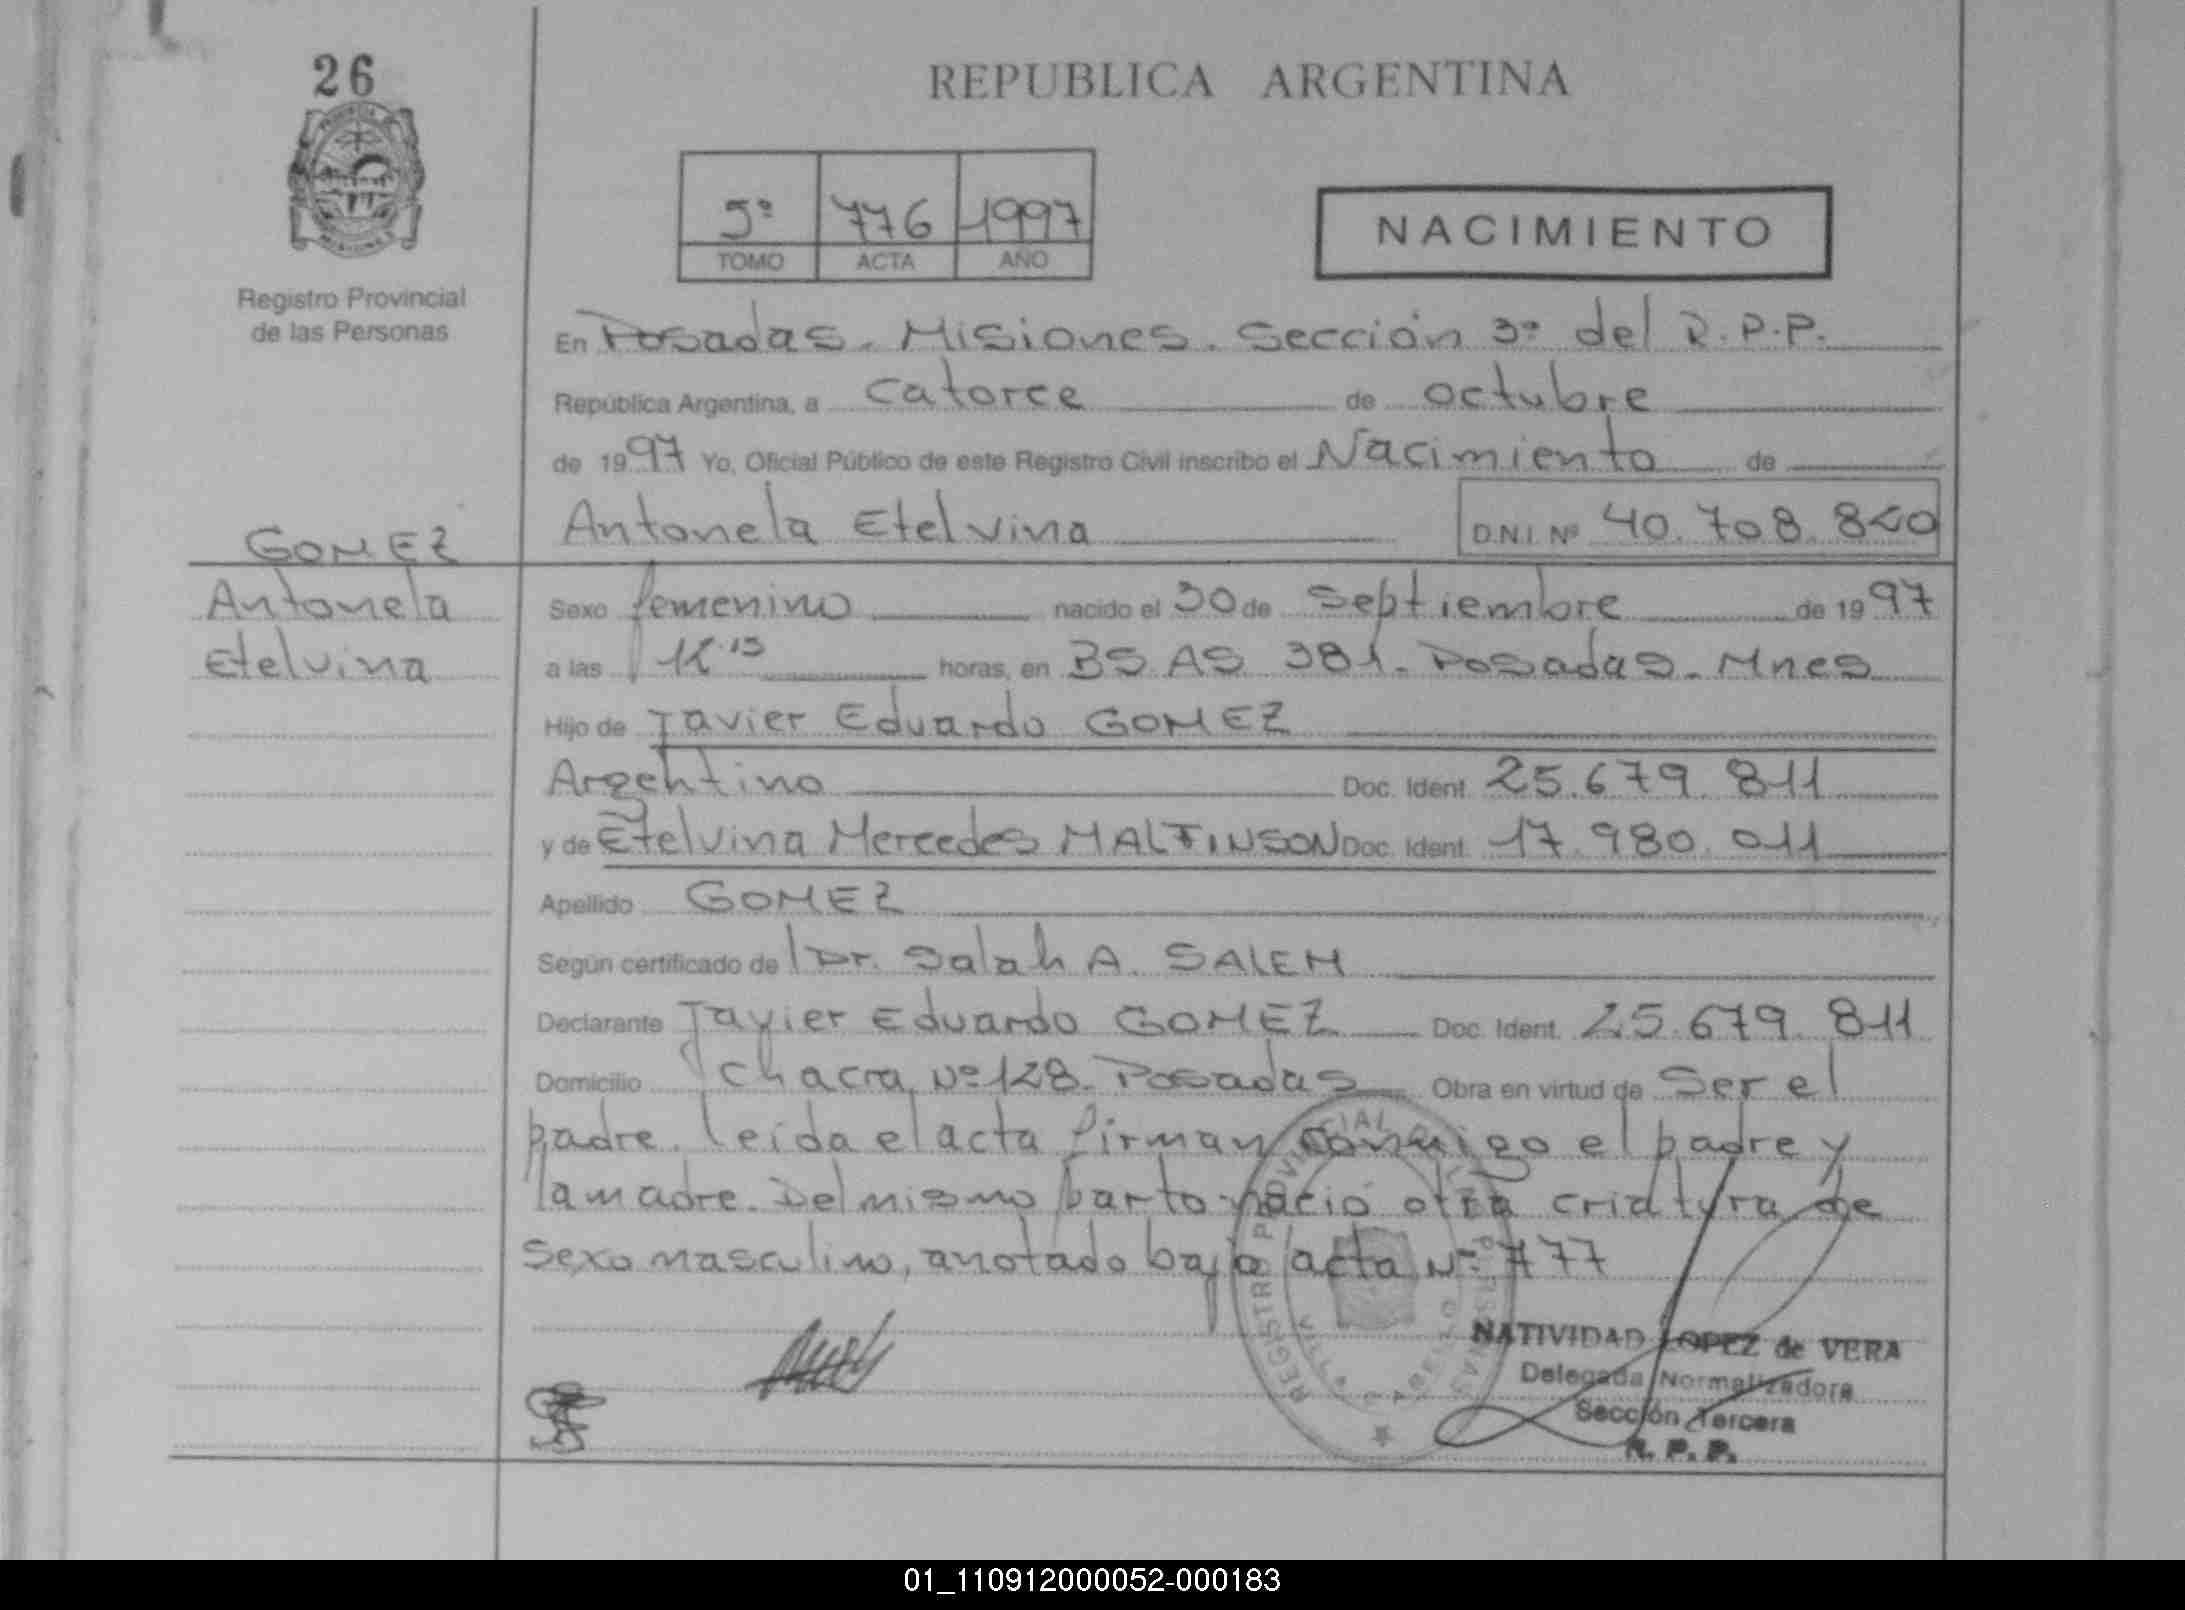 26
REPUBLICA ARGENTINA
5º 776 1997
TOMO ACTA AÑO
NACIMIENTO
Registro Provincial
de las Personas
En Posadas. Misiones. Sección 3ª del R.P.P.
República Argentina, a catorce de octubre
de 1997 Yo, Oficial Público de este Registro Civil inscribo el Nacimiento de
Antonela Etelvina D.N.I. Nº 40.708.820
GOMEZ
Antonela
Etelvina
Sexo femenino nacido el 30 de Septiembre de 1997
a las 12.15 horas, en BS.AS 381. Posadas. Mnes
Hijo de Javier Eduardo GOMEZ
Argentino Doc. Ident. 25.679.811
y de Etelvina Mercedes MALTINSON Doc. Ident. 17.980.011
Apellido GOMEZ
Según certificado de Dr. Salah A. SALEM
Declarante Javier Eduardo GOMEZ Doc. Ident. 25.679.811
Domicilio Chacra Nº 128. Posadas Obra en virtud de Ser el
padre. Leída el acta firman conmigo el padre y
la madre. Del mismo parto nació otra criatura de
sexo masculino, anotado bajo acta Nº 777
NATIVIDAD LOPEZ de VERA
Delegada Normalizadora
Sección Tercera
R. P. P.
01_110912000052-000183